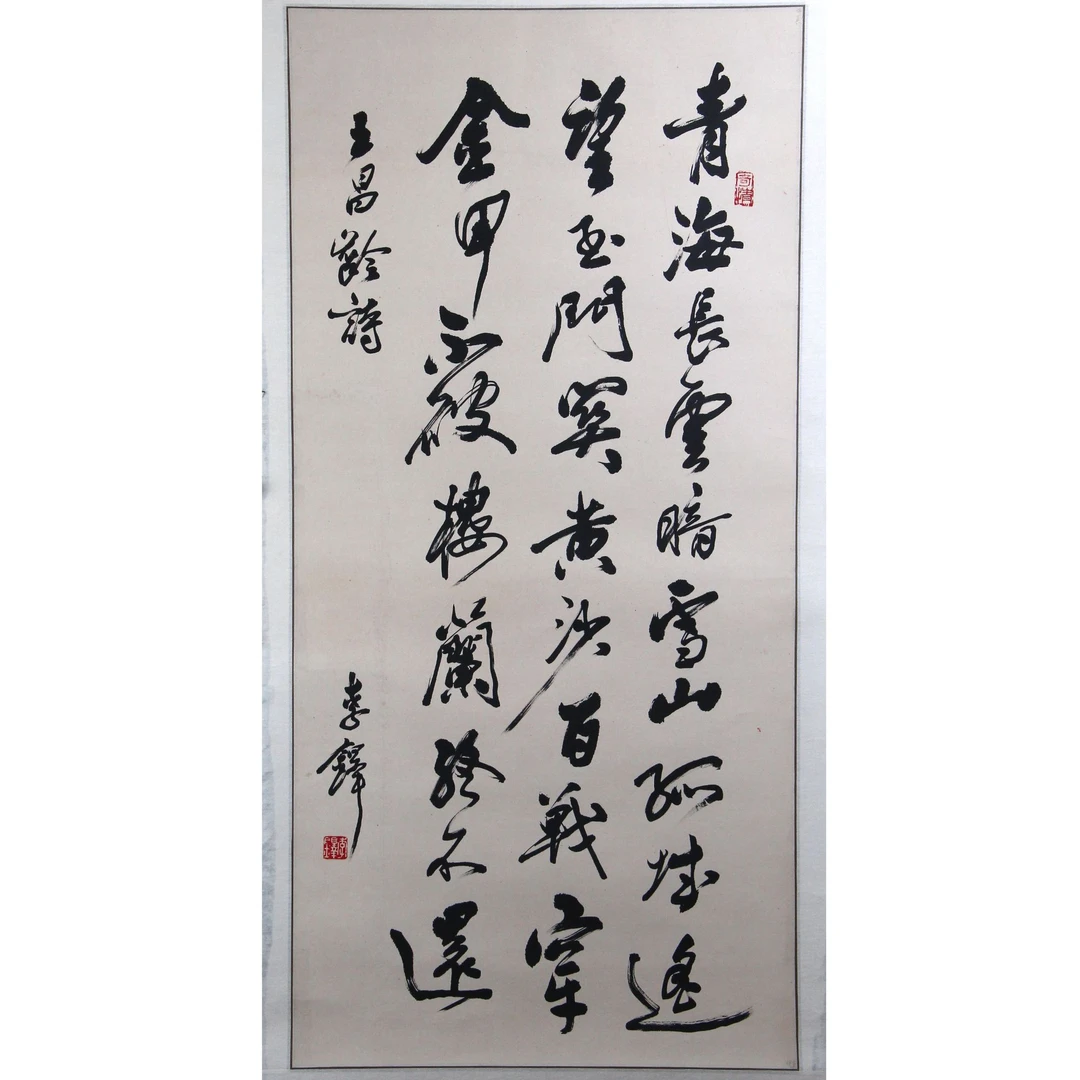 青海長雲暗雪山孤城遙
望玉門關黄沙百戰穿
金甲不破樓蘭終不還
王昌齡詩
李鐸
李鐸